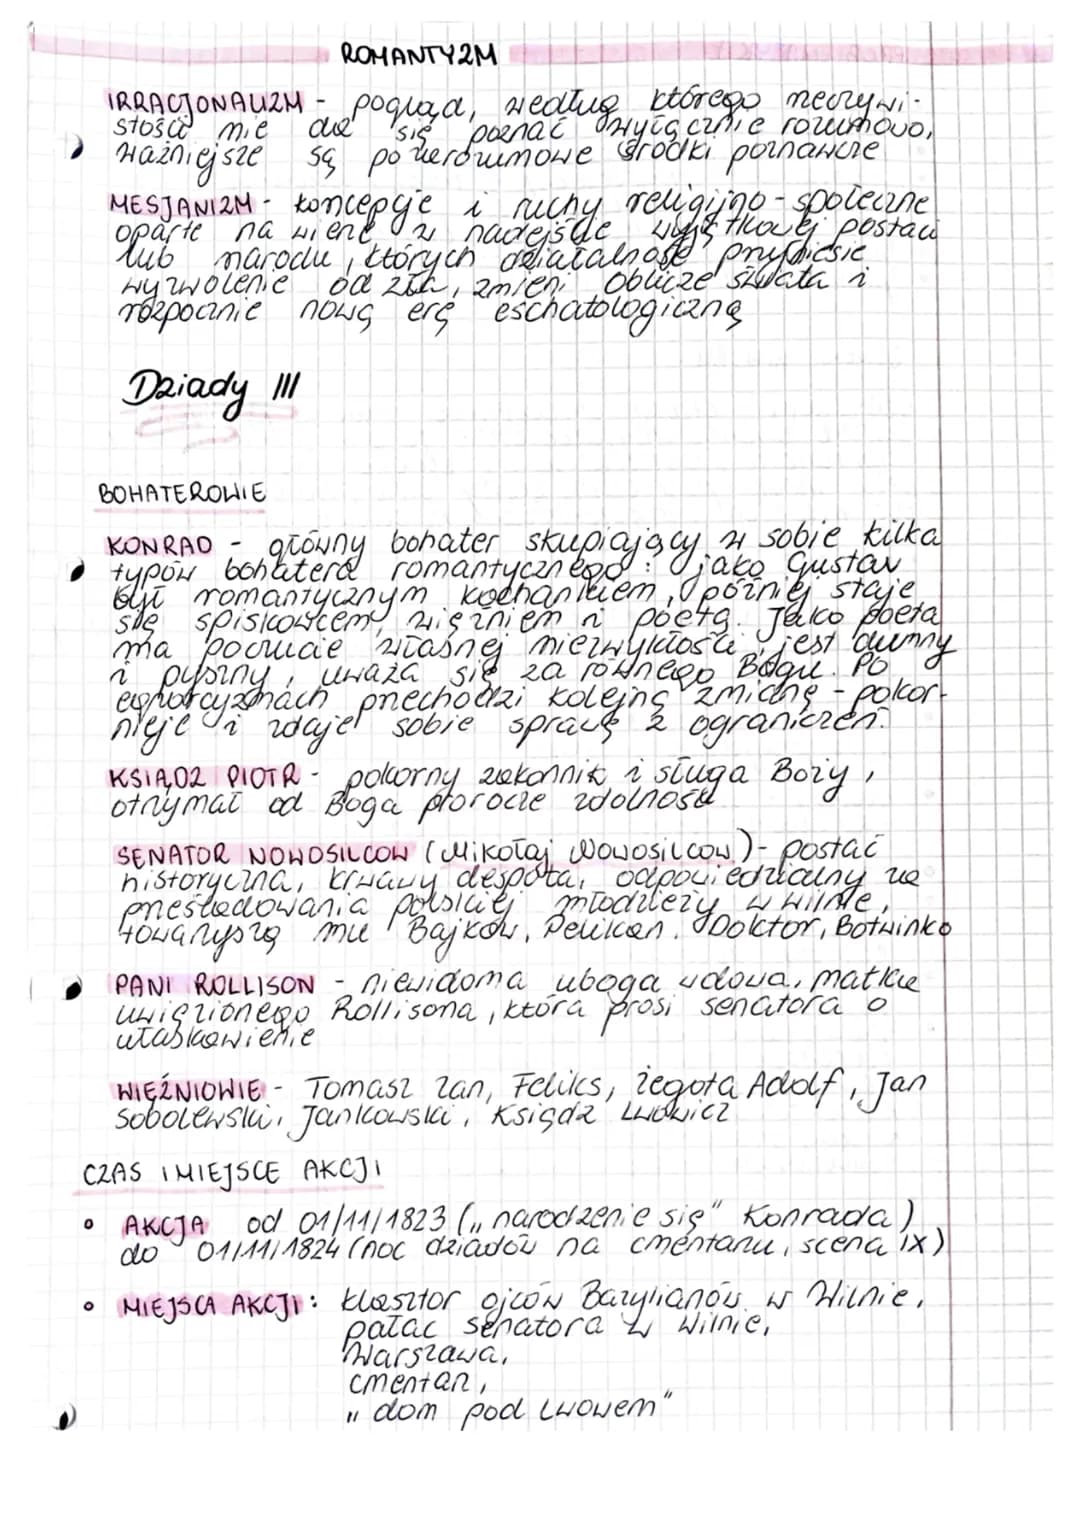 ROMANTYZM
IRRACJONALIZM - pogląd, według którego rzeczywi-
stości nie da się poznać wyłącznie rozumowo,
ważniejsze są pozarozumowe środki poznawcze
MESJANIZM - koncepcje i ruchy religijno-społeczne
oparte na wierze w nadejście wyjątkowej postaci
lub narodu, których działalność przyniesie
wyzwolenie od zła, zmieni oblicze świata i
rozpocznie nową erę eschatologiczną
Dziady III
BOHATEROWIE
KONRAD - główny bohater skupiający w sobie kilka
typów bohatera romantycznego: jako Gustaw
był romantycznym kochankiem, później staje
się spiskowcem, więźniem i poetą. Jako poeta
ma poczucie własnej niezwykłości, jest dumny
i pyszny, uważa się za równego Bogu. Po
egzorcyzmach przechodzi kolejną zmianę - pokor-
nieje i zdaje sobie sprawę z ograniczeń.
KSIĄDZ PIOTR - pokorny zakonnik i sługa Boży,
otrzymał od Boga prorocze zdolności
SENATOR NOWOSILCOW (Mikołaj Nowosilcow) - postać
historyczna, krwawy despota, odpowiedzialny za
prześladowania polskiej młodzieży w Wilnie,
towarzyszą mu Bajkow, Pelikan, Doktor, Botwinko
PANI ROLLISON - niewidoma uboga wdowa, matka
uwięzionego Rollisona, która prosi senatora o
ułaskawienie
WIĘŹNIOWIE - Tomasz Zan, Feliks, Żegota Adolf, Jan
Sobolewski, Jankowski, Ksiądz Lwowicz
CZAS I MIEJSCE AKCJI
• AKCJA od 01/11/1823 („narodzenie się" Konrada)
do 01/11/1824 (noc dziadów na cmentarzu, scena IX)
• MIEJSCA AKCJI: klasztor ojców Bazylianów w Wilnie,
pałac senatora w Wilnie,
Warszawa,
cmentarz,
„dom pod Lwowem"